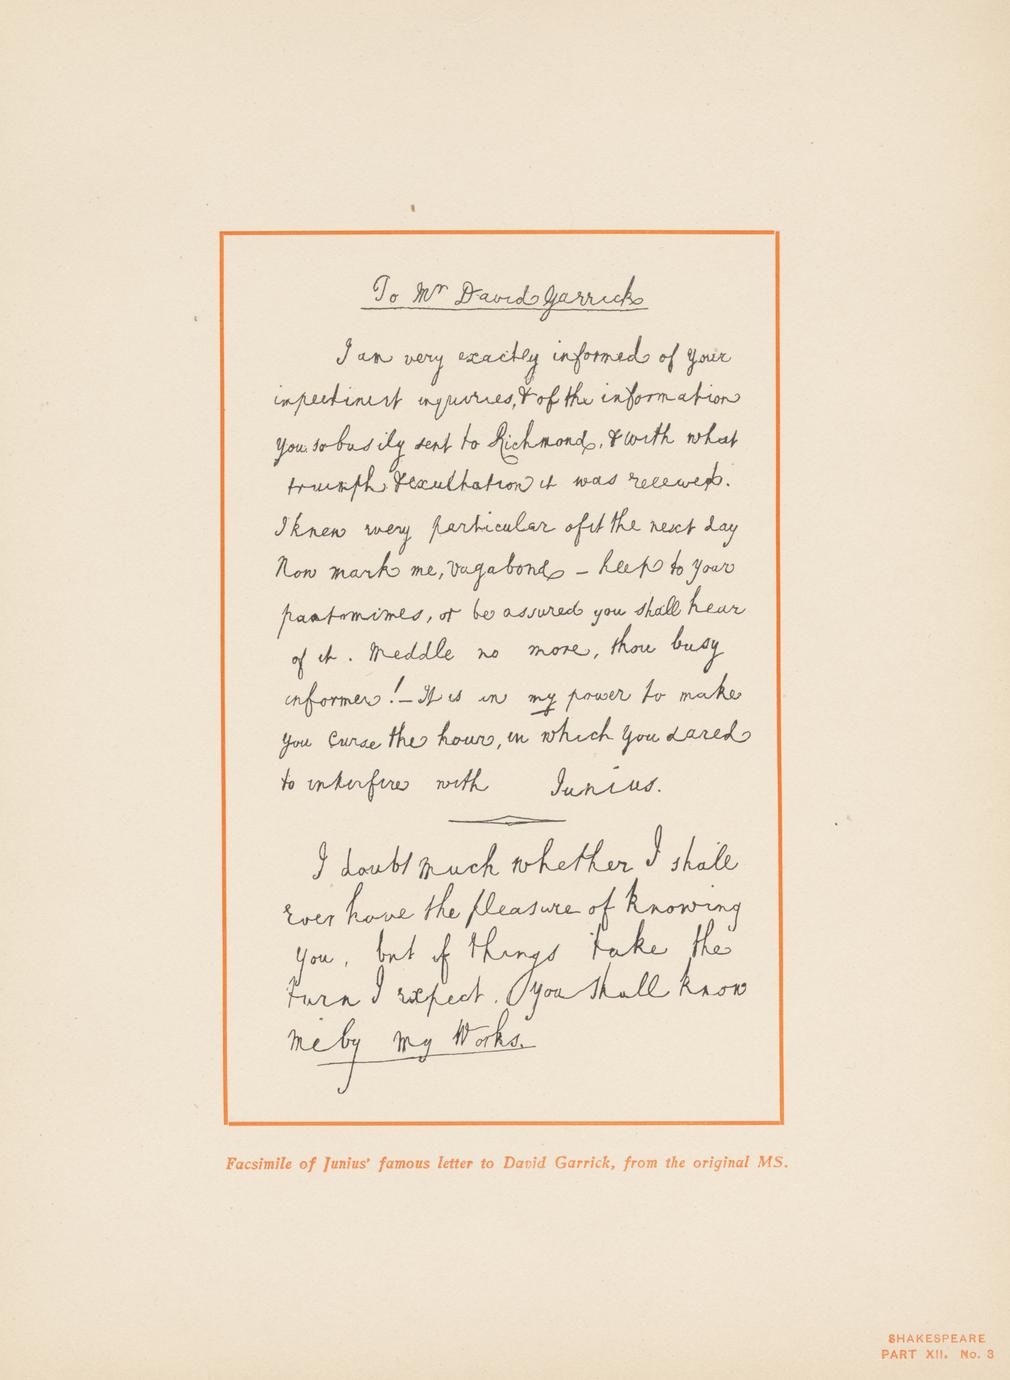 To Mr David Garrick
I am very exactly informed of your
impertinent inquiries, & of the information
you so busily sent to Richmond, & with what
triumph & exultation it was received.
I knew every particular of it the next day
Now mark me, vagabond – keep to your
pantomimes, or be assured you shall hear
of it. Meddle no more, thou busy
informer! – It is in my power to make
you Curse the hour, in which you dared
to interfere with Junius.
I doubt much whether I shall
Ever have the pleasure of knowing
you, but if things take the
turn I expect. You shall know
me by my Works.
Facsimile of Junius' famous letter to David Garrick, from the original MS.
SHAKESPEARE
PART XII. No. 3